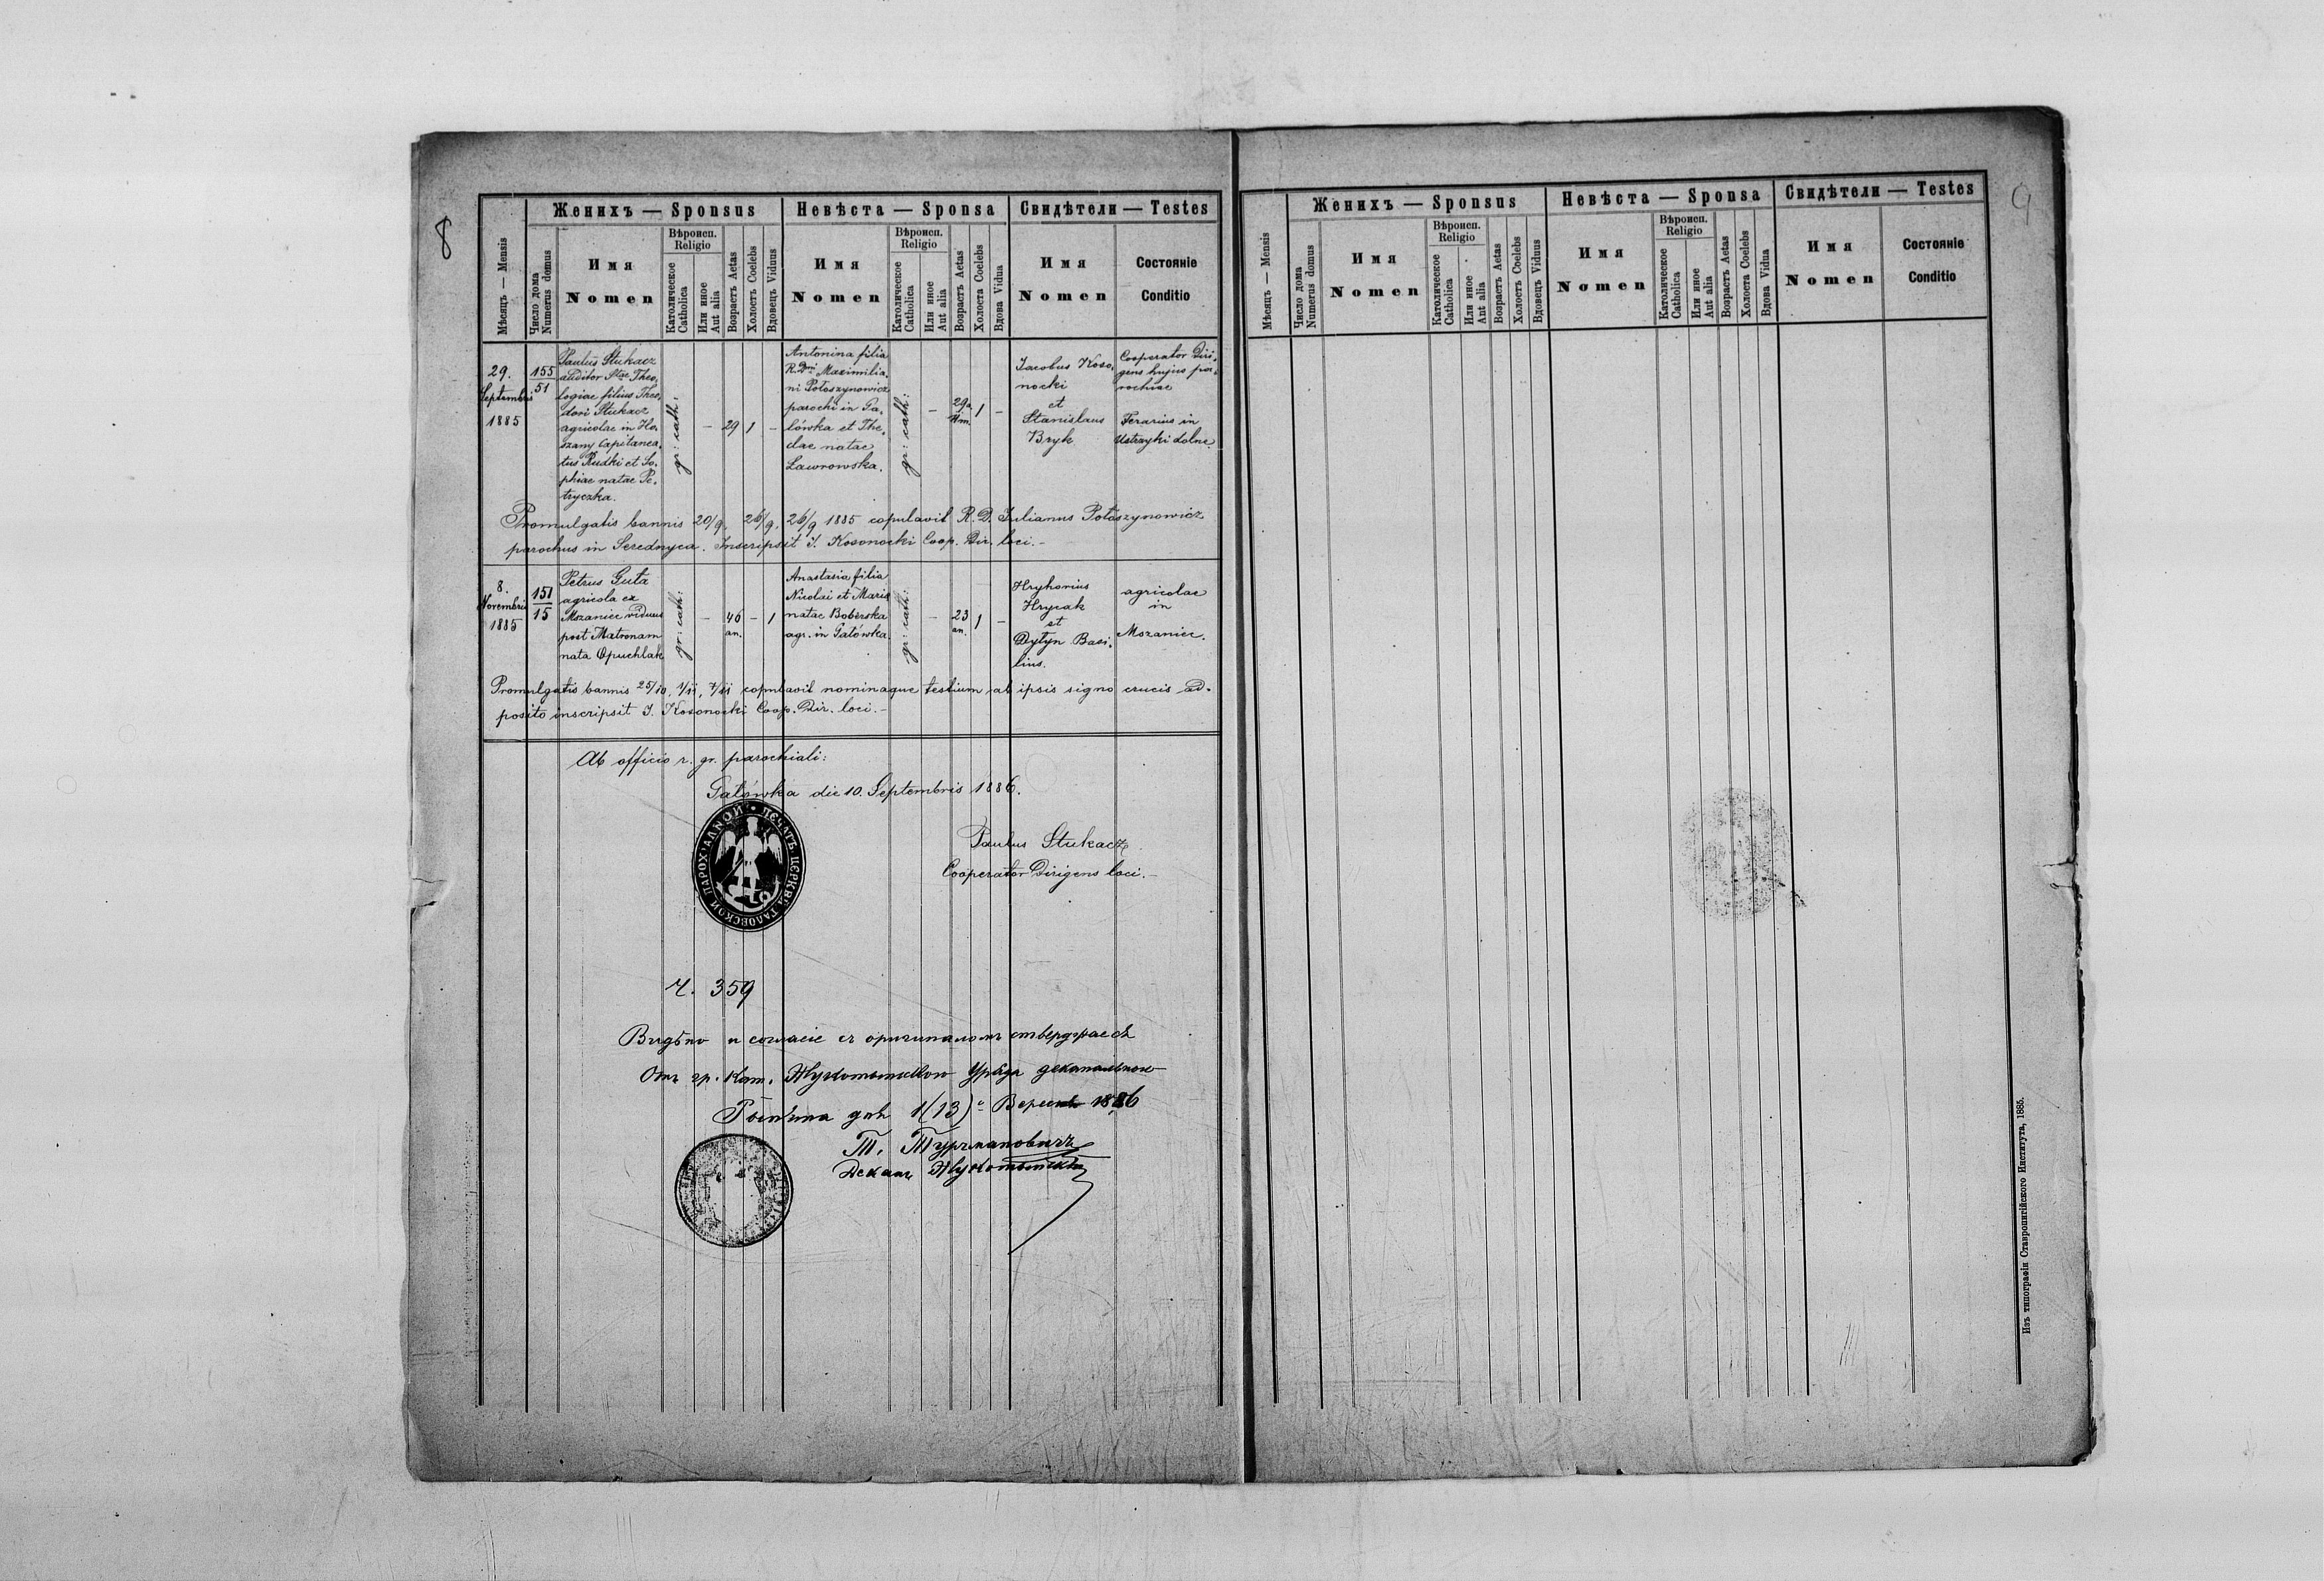 8
Женихъ — Sponsus
Невѣста — Sponsa
Свидѣтели — Testes
Мѣсяцъ — Mensis
Число дома
Numerus domus
Имя
Nomen
Вѣроисп.
Religio
Католическое
Catholica
Или иное
Aut alia
Возрастъ Aetas
Холостъ Coelebs
Вдовецъ Viduus
Имя
Nomen
Вѣроисп.
Religio
Католическое
Catholica
Или иное
Aut alia
Возрастъ Aetas
Холоста Coelebs
Вдова Vidua
Имя
Nomen
Состояніе
Conditio
29.
Septembris
1885
155
51
Paulus Stukacz
auditor Stae Theo-
logiae filius Theo-
dori Stukacz
agricolae in Ho-
szany Capitanea-
tus Rudki et So-
phiae natae Pe-
tryczka.
gr: cath:
–
29
1
–
Antonina filia
R. Dni Maximilia-
ni Potoszynowicz
parochi in Ga-
lówka et The-
clae natae
Lawrowska.
gr: cath:
–
29a
1
–
Jacobus Koso-
nocki
et
Stanislaus
Bryk
Cooperator Diri-
gens hujus pa-
rochiae
Ferarius in
Ustrzyki dolne.
Promulgatis bannis 20/9, 26/9, 26/9 1885 copulavit R. D. Julianus Potoszynowicz
parochus in Serednyca. Inscripsit J. Kosonocki Coop. Dir. loci.–
8.
Novembris
1885
151
15
Petrus Guta
agricola ex
Mszaniec viduus
post Matronam
nata Opuchlak
gr: cath:
–
46
an.
–
1
Anastasia filia
Nicolai et Maria
natae Boberska
agr. in Galówka.
gr: cath:
–
23
an.
1
–
Hryhorius
Hrycak
et
Dytyn Basi-
lius.
agricolae
in
Mszaniec.
Promulgatis bannis 25/10, 1/11, 7/11 copulavit nominaque testium ab ipsis signo crucis ad-
posito inscripsit J. Kosonocki Coop. Dir. loci.–
Ab officio r. gr. parochiali:
Galówka die 10. Septembris 1886.
ПЕЧАТЬ ЦЕРКВИ ГАЛОВСКОЙ ПАРОХІАЛНОЙ
Paulus Stukacz
Cooperator Dirigens loci.–
Ч. 359
Видѣно и согласіе съ оригиналомъ ствердзраесь
Отъ гр. кат. Жукотынского Уряда деканального
дня 1(13)
1886
Т. Турчмановичъ
Деканъ Жукотынскій
9
Женихъ — Sponsus
Невѣста — Sponsa
Свидѣтели — Testes
Мѣсяцъ — Mensis
Число дома
Numerus domus
Имя
Nomen
Вѣроисп.
Religio
Католическое
Catholica
Или иное
Aut alia
Возрастъ Aetas
Холостъ Coelebs
Вдовецъ Viduus
Имя
Nomen
Вѣроисп.
Religio
Католическое
Catholica
Или иное
Aut alia
Возрастъ Aetas
Холоста Coelebs
Вдова Vidua
Имя
Nomen
Состояніе
Conditio
Изъ типографіи Ставропигійского Института, 1885.